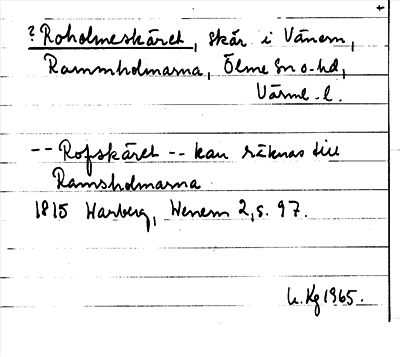 +
? Roholmeskäret, skär i Vänern,
Rammholmarna, Ölme sn o. hd,
Värml. l.
-- Rofskäret -- kan räknas till
Ramsholmarna
1815 Warberg, Wenern 2, s. 97.
L. Kg 1965.